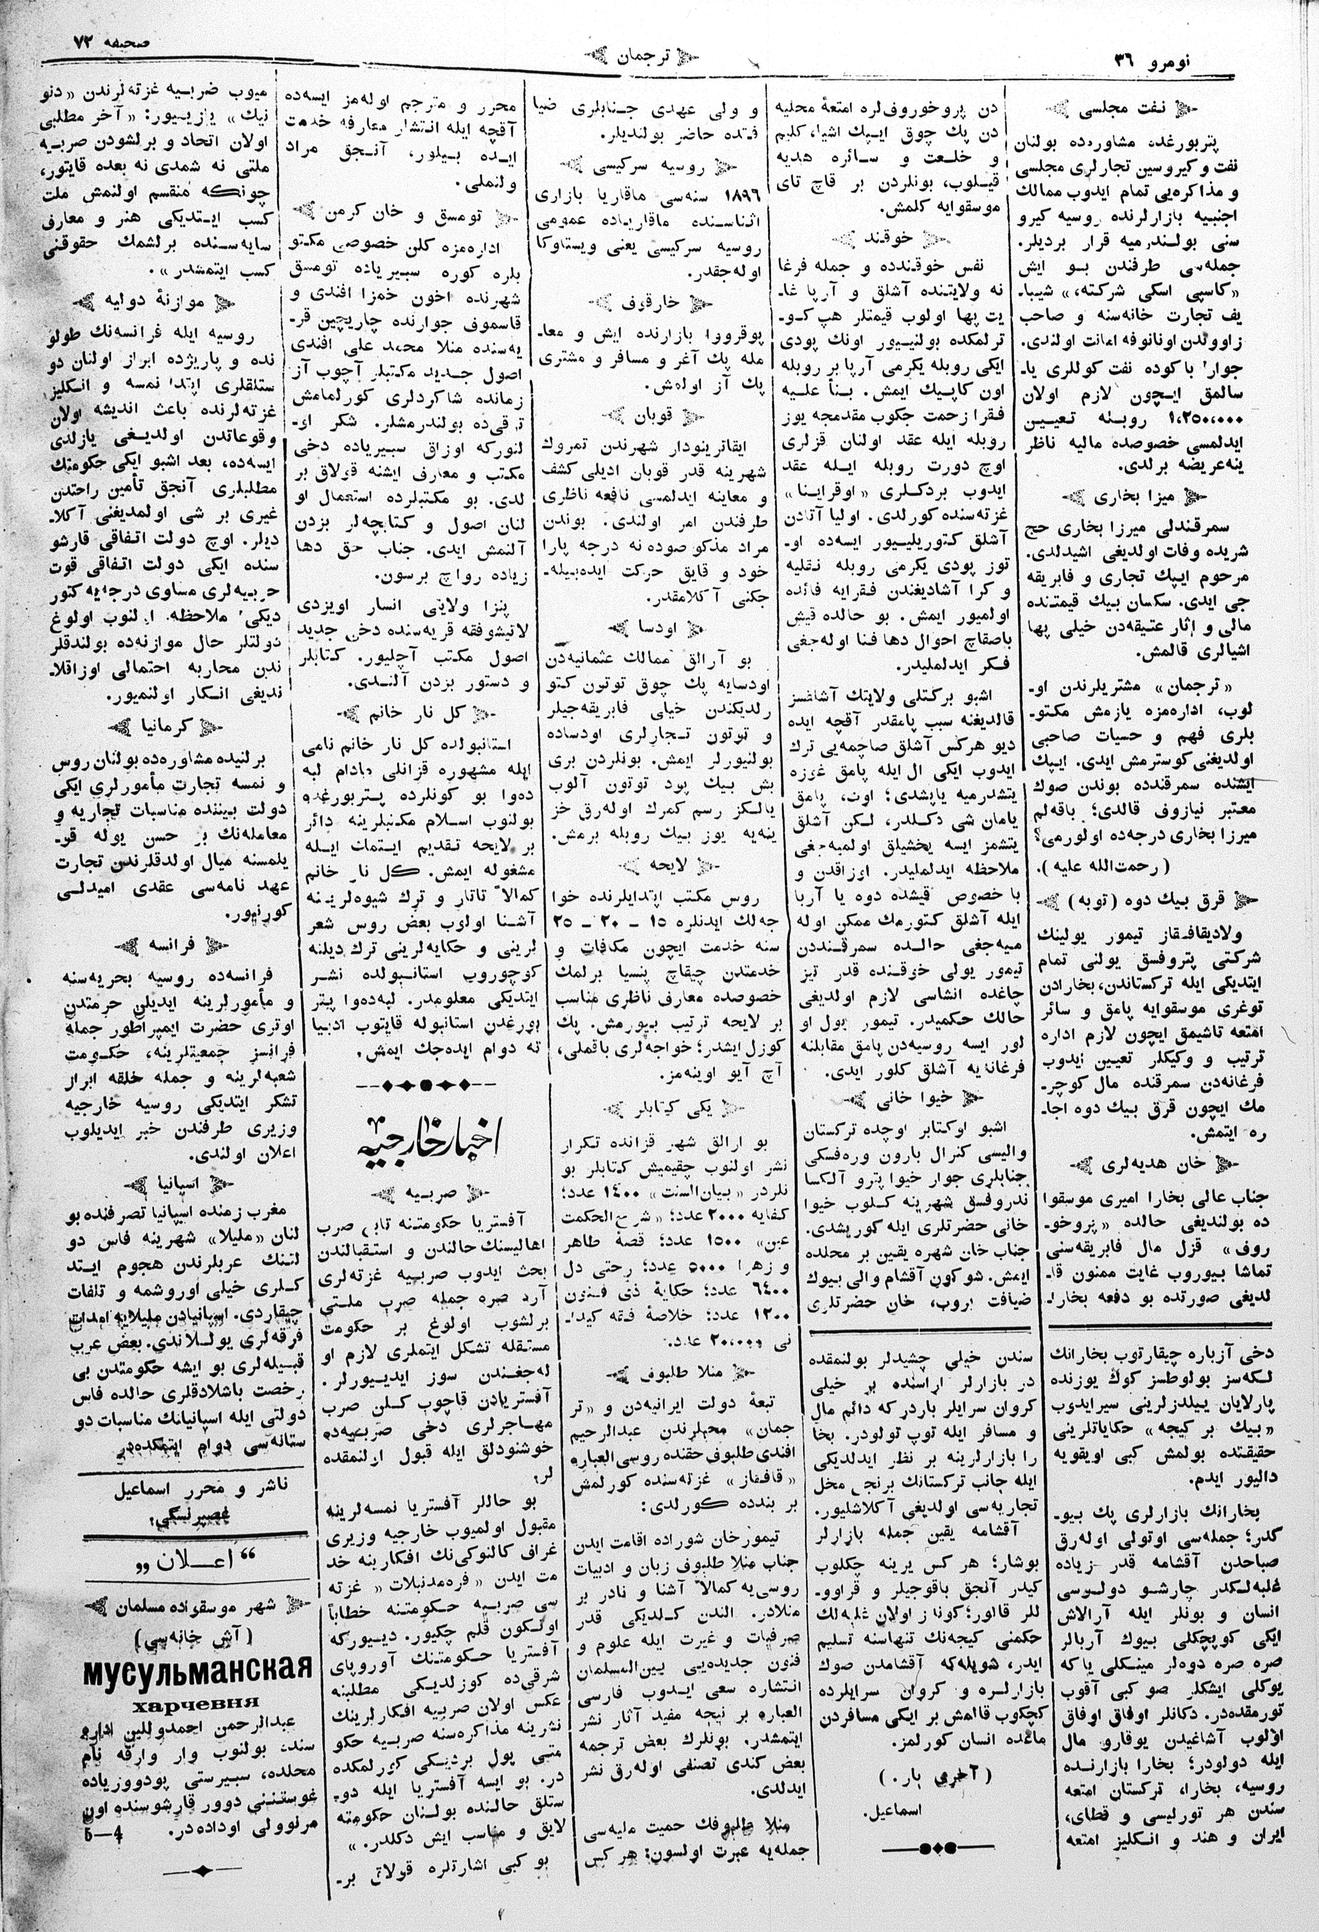 نومرو ٣٦
ترجمان
صحیفه ٧٢
نفت مجلسی
پتربورغده مشاورده بولنان
نفت و کیروسین تجارلری مجلسی
و مذاکره‌یی تمام ایدوب ممالك
اجنبیه بازارلرنده روسیه کیرو
سنی بولندرمیه قرار بردیلر.
جمله‌سی طرفندن بو ایش
«کاسپی اسکی شرکته،» شیبا-
یف تجارت خانه‌سنه و صاحب
زاوودلدن اونانوفه امانت اولندی.
جوار باکوده نفت کوللری یا-
سالمق ایچون لازم اولان
١،٢٥٠،٠٠٠ روبله تعیین
ایدلمسی خصوصده مالیه ناظر
ینه‌عریضه بردلدی.
میزا بخاری
سمرقندلی میرزا بخاری حج
شریده وفات اولدیغی اشیدلدی.
مرحوم ایپك تجاری و فابریقه
جی ایدی. سکسان بیك قیمتنده
مالی و اثار عتیقه‌دن خیلی پها
اشیالری قالمش.
«ترجمان» مشتریلرندن او-
لوب، اداره‌مزه یازمش مکتو-
بلری فهم و حسیات صاحبی
اولدیغنی کوسترمش ایدی. ایپك
ایشنده سمرقندده بوندن صوك
معتبر نیازوف قالدی؛ باقه‌لم
میرزا بخاری درجه‌ده اولورمی؟
(رحمت‌الله علیه).
قرق بیك دوه (توبه)
ولادیقافقاز تیمور یولینك
شرکتی پتروفسق یولنی تمام
ایتدیکی ایله ترکستاندن، بخارادن
توغری موسقوایه پامق و سائر
امتعه تاشیمق ایچون لازم اداره
ترتیب و وکیللر تعیین ایدوب
فرغانه‌دن سمرقنده مال کوچر-
مك ایچون قرق بیك دوه اجا-
ره ایتمش.
خان هدیه‌لری
جناب عالی بخارا امیری موسقوا
ده بولندیغی حالده «پروخو-
روف» قزل مال فابریقه‌سنی
تماشا بیوروب غایت ممنون قا-
لدیغی صورتده بو دفعه بخارا-
دن پروخوروفلره امتعهٔ محلیه
دن پك چوق ایپك اشیا، کلیم
و خلعت و سائره هدیه
قیلوب، بونلردن بر قاچ تای
موسقوایه کلمش.
خوقند
نفس خوقندده و جمله فرغا
نه ولایتنده آشلق و آرپا غا-
یت پها اولوب قیمتلر هپ کو-
ترلمکده بولنیور اونك پودی
ایکی روبله یکرمی آرپا بر روبله
اون کاپیك ایمش. بناً علیه
فقرا زحمت چکوب مقدمجه یوز
روبله ایله عقد اولنان قزلری
اوچ دورت روبله ایله عقد
ایدوب بردکلری «اوقراینا»
غزته‌سنده کورلدی. اولیا آتادن
آشلق کتوریلیور ایسه‌ده او-
توز پودی یکرمی روبله نقلیه
و کرا آشادیغندن فقرایه فائده
اولمیور ایمش. بو حالده قیش
باصقاچ احوال دها فنا اوله‌جغی
فکر ایدلملیدر.
اشبو برکتلی ولایتك آشلقسز
قالدیغنه سبب پامقدر آقچه ایده
دیو هرکس آشلق صاچمه‌یی ترك
ایدوب ایکی ال ایله پامق غرزه
یتشدرمیه یاپشدی؛ اوت، پامق
یامان شی دکلدر، لکن آشلق
یتشمز ایسه یخشیلق اولمیه‌جغی
ملاحظه ایدلملیدر. اوزاقدن و
با خصوص قیشده دوه یا آربا
ایله آشلق کتورمك ممکن اوله
میه‌جغی حالده سمرقنددن
تیمور یولی خوقنده قدر تیز
چاغده انشاسی لازم اولدیغی
حالك حکمیدر. تیمور یول او
لور ایسه روسیه‌دن پامق مقابلنه
فرغانه‌یه آشلق کلور ایدی.
خیوا خانی
اشبو اوکتابر اوچده ترکستان
والیسی کنرال بارون وره‌فسکی
جنابلری جوار خیوا پترو آلکسا
ندروفسق شهرینه کلوب خیوا
خانی حضرتلری ایله کوریشدی.
جناب خان شهره یقین بر محلده
ایمش. شوکون آقشام والی بیوك
ضیافت بروب، خان حضرتلری
و ولی عهدی جنابلری ضیا
فتده حاضر بولندیلر.
روسیه سرکیسی
١٨٩٦ سنه‌سی ماقاریا بازاری
اثناسنده ماقاریاده عمومی
روسیه سرکیسی یعنی ویستاوکا
اوله‌جقدر.
خارقوف
پوقروو بازارنده ایش و معا-
مله پك آغر و مسافر و مشتری
پك آز اولمش.
قوبان
ایقاترینودار شهرندن تمروك
شهرینه قدر قوبان ادیلی کشف
و معاینه ایدلمسی نافعه ناظری
طرفندن امر اولندی. بوندن
مراد مذکور صوده نه درجه پارا
خود و قایق حرکت ایده‌بیله-
جکنی آکلامقدر.
اودسا
بو آرالق ممالك عثمانیه‌دن
اودسایه پك چوق توتون کتو
رلدیکندن خیلی فابریقه‌جیلر
و توتون تجارلری اودساده
بولنیورلر ایمش. بونلردن بری
بش بیك پود توتون آلوب
یالکز رسم کمرك اوله‌رق خز
ینه‌یه یوز بیك روبله برمش.
لایحه
روس مکتب ابتدایلرنده خوا
جه‌لك ایدنلره ١٥ - ٢٠ - ٢٥
سنه خدمت ایچون مکافات و
خدمتدن چیقاچ پنسیا برلمك
خصوصده معارف ناظری مناسب
بر لایحه ترتیب بیورمش. پك
کوزل ایشدر؛ خواجه‌لری باقملی،
آچ آیو اوینه‌مز.
یکی کتابلر
بو ارالق شهر قزانده تکرار
نشر اولنوب چقیمیش کتابلر بو
نلردر «بیان‌السنت» ١٤٠٠ عدد؛
کفایه ٢٠٠٠ عدد؛ «شرح‌الحکمت
عین» ١٥٠٠ عدد؛ قصهٔ طاهر
و زهرا ٥٠٠٠ عدد؛ رحتی دل
٦٤٠٠ عدد؛ حکایهٔ ذی فنون
١٢٠٠ عدد؛ خلاصهٔ فقه کیدا-
نی ٢٠،٠٠٠ عدد.
منلا طلبوف
تبعهٔ دولت ایرانیه‌دن و «تر
جمان» محبلرندن عبدالرحیم
افندی طلبوف حقنده روسی‌العباره
«قافقاز» غزته‌سنده کورلمش
بر بنده کورلدی:
تیمورخان شوراده اقامت ایدن
جناب منلا طلبوف زبان و ادبیات
روسی‌یه کمالاً آشنا و نادر بر
منلادر. الندن کلدیکی قدر
صرفیات و غیرت ایله علوم و
فنون جدیده‌یی بین‌المسلمان
انتشاره سعی ایدوب فارسی
العباره بر نیجه مفید آثار نشر
ایتمشدر. بونلرك بعض ترجمه
بعض کندی تصنفی اوله‌رق نشر
ایدلدی.
منلا طلبوفك حمیت ملیه‌سی
جمله‌یه عبرت اولسون: هرکس
محرر و مترجم اوله‌مز ایسه‌ده
آقچه ایله انتشار معارفه خدمت
ایده بیلور، آنجق مراد
ولنملی.
تومسق و خان کرمن
اداره‌مزه کلن خصوصی مکتو
بلره کوره سبیریاده تومسق
شهرنده اخون حمزا افندی و
قاسموف جوارنده چاریچین قر-
یه‌سنده منلا محمد علی افندی
اصول جدید مکتبلر آچوب آز
زمانده شاکردلری کورلمامش
ترقی‌ده بولندرمشلر. شکر او-
لنورکه اوزاق سبیریاده دخی
مکتب و معارف ایشنه قولاق بر
لدی. بو مکتبلرده استعمال او
لنان اصول و کتابچه‌لر بزدن
آلنمش ایدی. جناب حق دها
زیاده رواج برسون.
پنزا ولایتی انسار اویزدی
لاتیشوفقه قریه‌سنده دخی جدید
اصول مکتب آچلیور. کتابلر
و دستور بزدن آلندی.
کل نار خانم
استانبولده کل نار خانم نامی
ایله مشهوره قزانلی مادام لبه
ده‌وا بو کونلرده پتربورغده
بولنوب اسلام مکتبلرینه دائر
بر لایحه تقدیم ایتمك ایله
مشغوله ایمش. کل نار خانم
کمالاً تاتار و ترك شیوه‌لرینه
آشنا اولوب بعض روس شعر
لرینی و حکایه‌لرینی ترك دیلنه
کوچوروب استانبولده نشر
ایتدیکی معلومدر. لبه‌ده‌وا پتر
بورغدن استانبوله قایتوب ادبیا
ته دوام ایده‌جك ایمش.
اخبار خارجیه
صربیه
آفستریا حکومتنه تابع صرب
اهالیسنك حالندن و استقبالندن
بحث ایدوب صربیه غزته‌لری
آرد صره جمله صرب ملتی
برلشوب اولوغ بر حکومت
مستقله تشکل ایتملری لازم او
له‌جغندن سوز ایدییورلر.
آفستریادن قاچوب کلن صرب
مهاجرلری دخی صربیه‌ده
خوشنودلق ایله قبول اولنمقده
لر.
بو حاللر آفستریا نمسه‌لرینه
مقبول اولمیوب خارجیه وزیری
غراف کالنوکی‌نك افکارینه خد
مت ایدن «فره‌مدنبلات» غزته
سی صربیه حکومتنه خطاباً
اولکون قلم چکیور. دییورکه
آفستریا حکومتنك آوروپای
شرقی‌ده کوزلدیکی مطلبنه
عکس اولان صربیه افکارلرینك
نشرینه مذاکره‌سنه صربیه حکو
متی یول بردیکی کورلمکده
در. بو ایسه آفستریا ایله دو-
ستلق حالنده بولنان حکومته
لایق و مناسب ایش دکلدر.»
بو کبی اشارتلره قولاق بر-
میوب ضربیه غزته‌لرندن «دنو
نیك» یازییور: «آخر مطلبی
اولان اتحاد و برلشودن صربیه
ملتی نه شمدی نه بعده قایتور،
چونکه منقسم اولنمش ملت
کسب ایتدیکی هنر و معارف
سایه‌سنده برلشمك حقوقنی
کسب ایتمشدر».
موازنهٔ دولیه
روسیه ایله فرانسه‌نك طولو
نده و پاریژده ابراز اولنان دو
ستلقلری ابتدا نمسه و انکلیز
غزته‌لرنده باعث اندیشه اولان
وقوعاتدن اولدیغی یازلدی
ایسه‌ده، بعد اشبو ایکی حکومتك
مطلبلری آنجق تأمین راحتدن
غیری بر شی اولمدیغنی آکلا-
دیلر. اوچ دولت اتفاقی قارشو
سنده ایکی دولت اتفاقی قوت
حربیه‌لری مساوی درجه‌یه کتور
دیکی ملاحظه اولنوب اولوغ
دولتلر حال موازنه‌ده بولندقلر
ندن محاربه احتمالی اوزاقلا-
ندیغی انکار اولنمیور.
کرمانیا
برلنیده مشاوره‌ده بولنان روس
و نمسه تجارت مأمورلری ایکی
دولت بیننده مناسبات تجاریه و
معامله‌نك بر حسن یوله قو-
یلمسنه میال اولدقلرندن تجارت
عهد نامه‌سی عقدی امیدلی
کورنیور.
فرانسه
فرانسه‌ده روسیه بحریه‌سنه
و مأمورلرینه ایدیلن حرمتدن
اوتری حضرت ایمپراطور جمله
فرانسز جمعیتلرینه، حکومت
شعبه‌لرینه و جمله خلقه ابراز
تشکر ایتدیکی روسیه خارجیه
وزیری طرفندن خبر ایدیلوب
اعلان اولندی.
اسپانیا
مغرب زمنده اسپانیا تصرفنده بو
لنان «ملیلا» شهرینه فاس دو
لتنك عربلرندن هجوم ایتد
کلری خیلی اوروشمه و تلفات
چیقاردی. اسپانیادن ملیلایه امدات
فرقه‌لری یوللاندی. بعض عرب
قبیله‌لری بو ایشه حکومتدن بی
رخصت باشلادقلری حالده فاس
دولتی ایله اسپانیانك مناسبات دو
ستانه‌سی دوام ایتمکده‌در.
ناشر و محرر اسماعیل
غصپرنسکی؛
«اعلان»
شهر موسقواده مسلمان
(آش خانه‌سی)
мусульманская
харчевня
عبدالرحمن احمدوللین اداره
سنده بولنوب وار وارقه نام
محلده، سبیرستی پودووزیاده
غوستننی دوور قارشوسنده اون
مرلوولی اوداده‌در.
5—4
دخی آزباره چیقارتوب بخارانك
لکه‌سز بولوطسز کوك یوزنده
پارلایان ییلدزلرینی سیرایدوب
«بیك بر کیجه» حکایاتلرینی
حقیقتده بولمش کبی اویقویه
دالیور ایدم.
بخارانك بازارلری پك بیو-
کدر؛ جمله‌سی اوتولی اوله‌رق
صباحدن آقشامه قدر زیاده
غلبه‌لکدر چارشو دولوسی
انسان و بونلر ایله آرالاش
ایکی کوپچکلی بیوك آربالر
صره صره دوه‌لر مینکلی یاکه
یوکلی ایشکلر صو کبی آقوب
تورمقده‌در. دکانلر اوفاق اوفاق
اولوب آشاغیدن یوقارو مال
ایله دولودر؛ بخارا بازارنده
روسیه، بخارا، ترکستان امتعه
سندن هر تورلیسی و قطای،
ایران و هند و انکلیز امتعه
سندن خیلی چشیدلر بولنمقده
در بازارلر اراسنده بر خیلی
کروان سرایلر باردر که دائم مال
و مسافر ایله توپ تولودر. بخا
را بازارلرینه بر نظر ایدلدیکی
ایله جانب ترکستانك برنجی محل
تجاریه‌سی اولدیغی آکلاشلیور.
آقشامه یقین جمله بازارلر
بوشار؛ هر کس یرینه چکلوب
کیدر آنجق باقوجیلر و قراوو-
للر قالور؛ کوندز اولان غلبه‌لك
حکمنی کیجه‌نك تنهاسنه تسلیم
ایدر، شویله‌که آقشامدن صوك
بازارلره و کروان سرایلرده
کچکوب قالمش بر ایکی مسافردن
ماعده انسان کورلمز.
(آخری بار.)
اسماعیل.